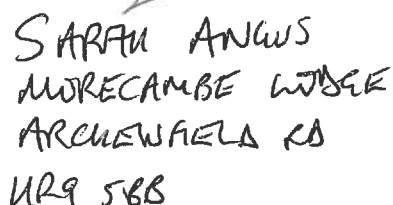 SARAH ANGUS
MORECAMBE LODGE
ARCHENFIELD RD
HR9 5BB